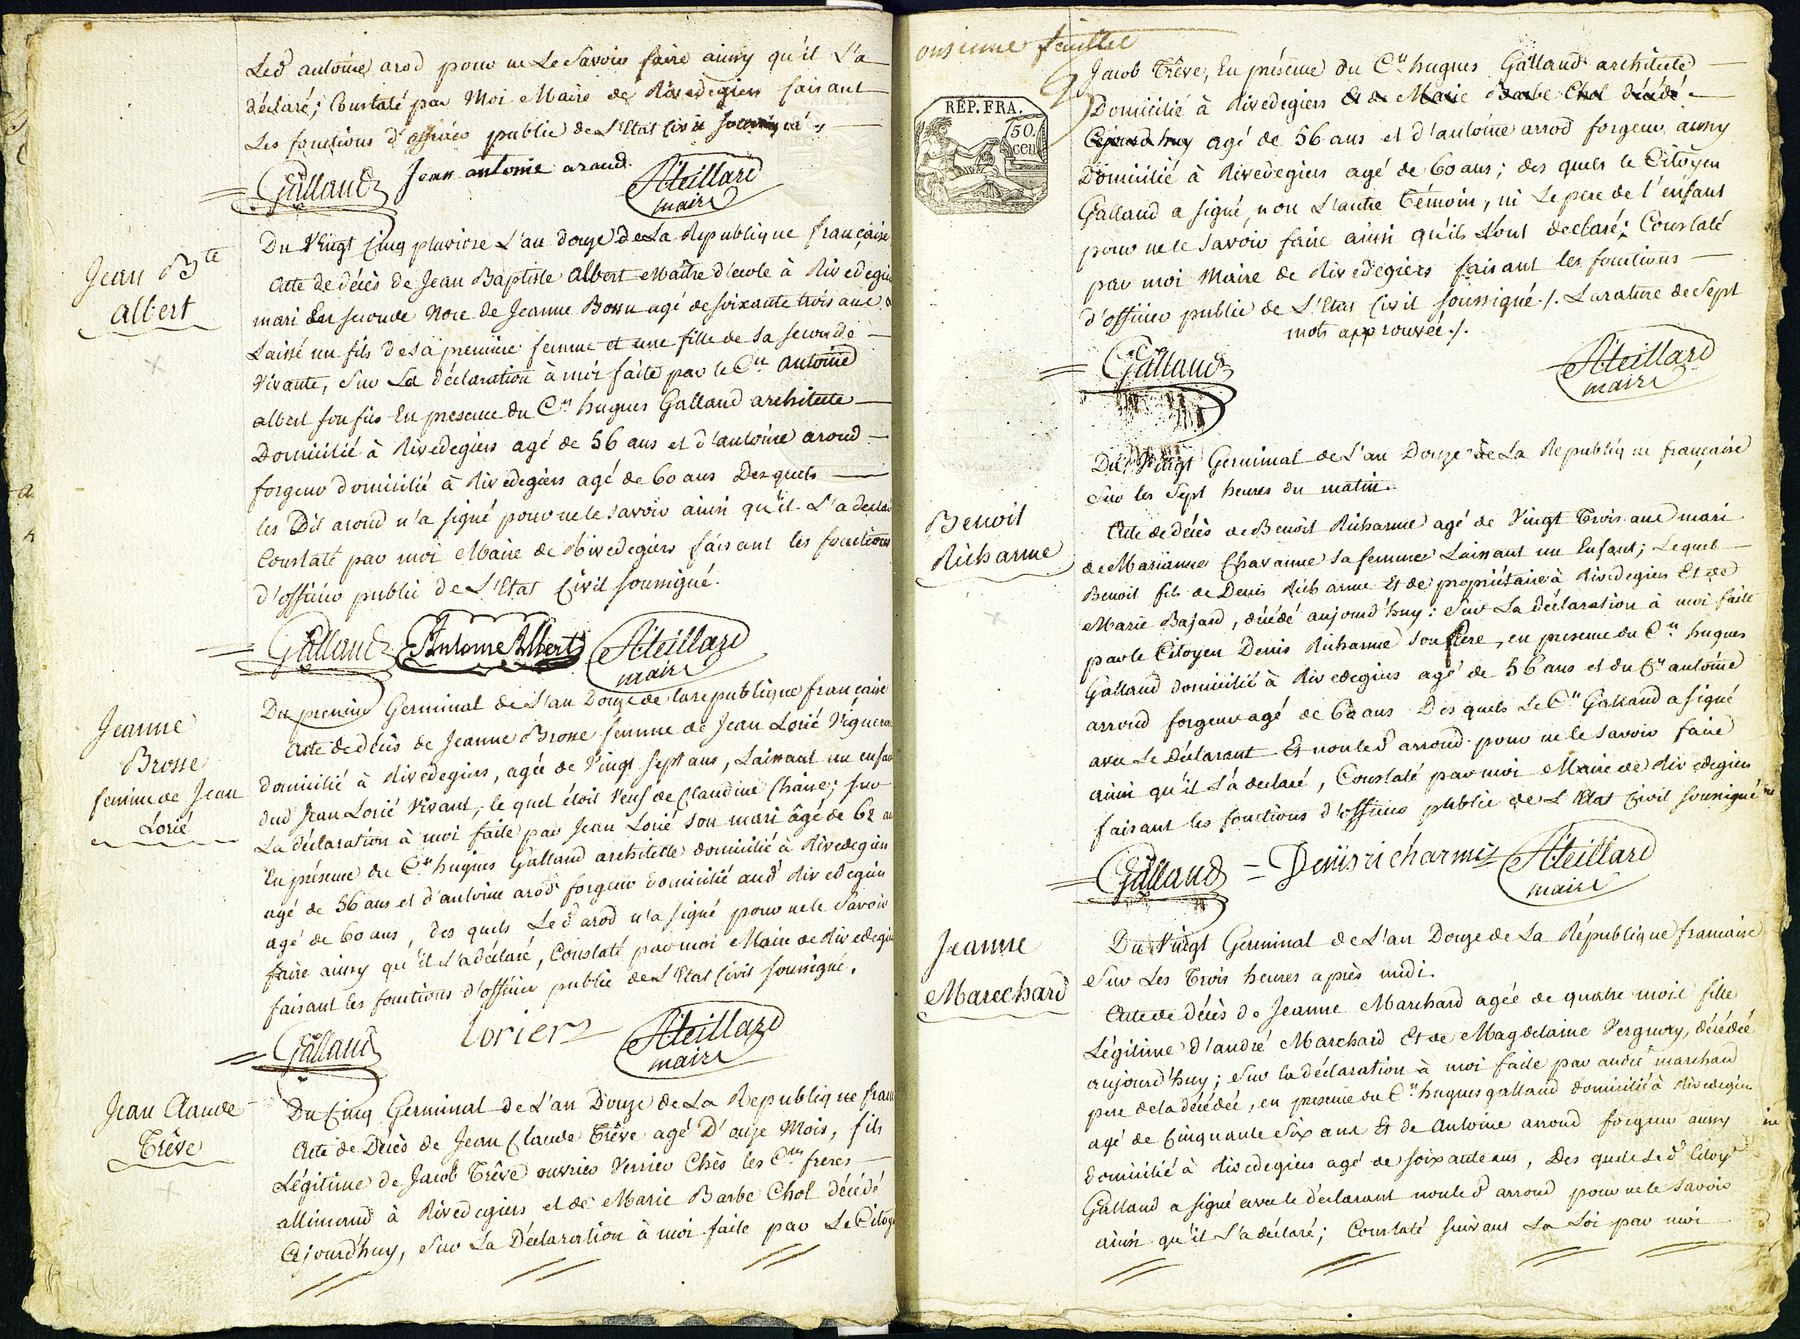 Led antoine arod pour ne Le Savoir faire ainsy qu'il L'a
déclaré; Constaté par Moi Maire de Rivedegiers faisant
Les fonctions d'officier public de L'Etat Civil soussigné
Galland Jean antonie araud Steillard
maire
Jean Bte
albert
Du Vingt Cinq pluviose L'an douze de La Republique française
Acte de décès de Jean Baptiste albert Maitre d'ecole à Rivedegiers
mari en seconde Noce de Jeanne Bossu agé de soixante trois ans
Laissé un fils de sa premiere femme et une fille de sa seconde
Vivante, Sur La déclaration à moi faite par le Cen antoine
albert son fils En presence du Cen hugues Galland architecte
Domicilié à Rivedegiers agé de 56 ans et d'antoine aroud
forgeur domicilié à Rivedegiers agé de 60 ans Desquels
les Dit aroud n'a signé pour ne le savoir ainsi qu'il L'a declaré
Constaté par moi Maire de Rivedegiers faisant les fonctions
d'officier public de L'Etat Civil soussigné.
Galland Antoine Albert Steillard
maire
Jeanne
Brosse
femme de Jean
Lorié
Du premier Germinal de L'an Douze de la republique française
Acte de decès de Jeanne Brosse femme de Jean Lorié Vigneron
domicilié à Rivedegiers, agée de Vingt sept ans, Laissant un enfant
dud Jean Lorié Vivant, le quel étoit Veuf de Claudine Chaine; sur
La déclaration à moi faite par Jean Lorié son mari âgé de 62 ans
En présence du Cen hugues Galland architecte domicilié à Rivedegiers
agé de 56 ans et d'antoine arod forgeur domicilié aud Rivedegiers
agé de 60 ans, des quels Led arod n'a signé pour ne le Savoir
faire ainsy qu'il L'a déclaré, Constaté par moi Maire de Rivedegiers
faisant les fonctions d'officier public de L'Etat Civil soussigné.
Galland Lorier Steillard
maire
Jean Claude
Trêve
Du Cinq Germinal de L'an Douze de La Republique fran
Acte de Decès de Jean Claude Trêve agé D'onze Mois, fils
Légitime de Jacob Trêve ouvrier Verrier Chès les Cens freres
allimand à Rivedegiers et de Marie Barbe Chol décédé
Ajourd'huy, Sur La Déclaration à moi faite par Le Citoyen
onzieme feuillet
REP. FRA.
50.
cen
Jacob Trêve, En présence du Cen hugues Galland architecte
Domicilié à Rivedegiers Et de Marie Barbe Chol décédé
agé de 56 ans et d'antoine arrod forgeur aussy
Domicilié à Rivedegiers agé de 60 ans; des quels le Citoyen
Galland a signé, non L'autre Témoin, ni Le pere de l'enfant
pour ne le savoir faire ainsi qu'ils L'ont declaré; Constaté
par moi Maire de Rivedegiers faisant les fonctions
d'officier public de L'Etat Civil soussigné /. La rature de Sept
mots approuvée /.
Galland Steillard
maire
Benoit
Richarme
Du Vingt Germinal de L'an Douze de La Republique française
Sur les Sept heures du matin.
Acte de décès de Benoit Richarme agé de Vingt Trois ans mari
de Marianne Chavanne sa femme Laissant un Enfant; Lequel
Benoit fils de Denis Richarme Et de propriétaire à Rivedegiers Et de
Marie Bajard, décédé aujourd'huy: Sur La déclaration à moi faite
par le Citoyen Denis Richarme son frere, en presence du Cen hugues
Galland domicilié à Rivedegiers agé de 56 ans et du Cen antoine
arroud forgeur agé de 60 ans Des quels Le Cen Galland a signé
avec Le Déclarant Et non led arroud pour ne le Savoir faire
ainsi qu'il L'a declaré, Constaté par moi Maire de Rivedegiers
faisant les fonctions d'officier public de L'Etat Civil soussigné
Galland = Denis richarme Steillard
maire
Jeanne
Marechard
Du Vingt Germinal de L'an Douze de La République francaise
Sur Les Trois heures après midi.
Acte de Décès de Jeanne Marchard agée de quatre mois fille
Légitime d'andré Marchard Et de Magdelaine Vergniory, décédée
aujourd'huy; Sur la déclaration à moi faite par andré marchard
pere de la décédée, en presence du Cen hugues galland domicilié à Rivedegiers
agé de Cinquante Six ans Et de Antoine arroud forgeur aussy
Domicilié à Rivedegiers agé de soixante ans, Des quels Led Citoyen
Galland a signé avec le déclarant non led arroud pour ne le Savoir
ainsi qu'il L'a déclaré; Constaté suivant La Loi par moi